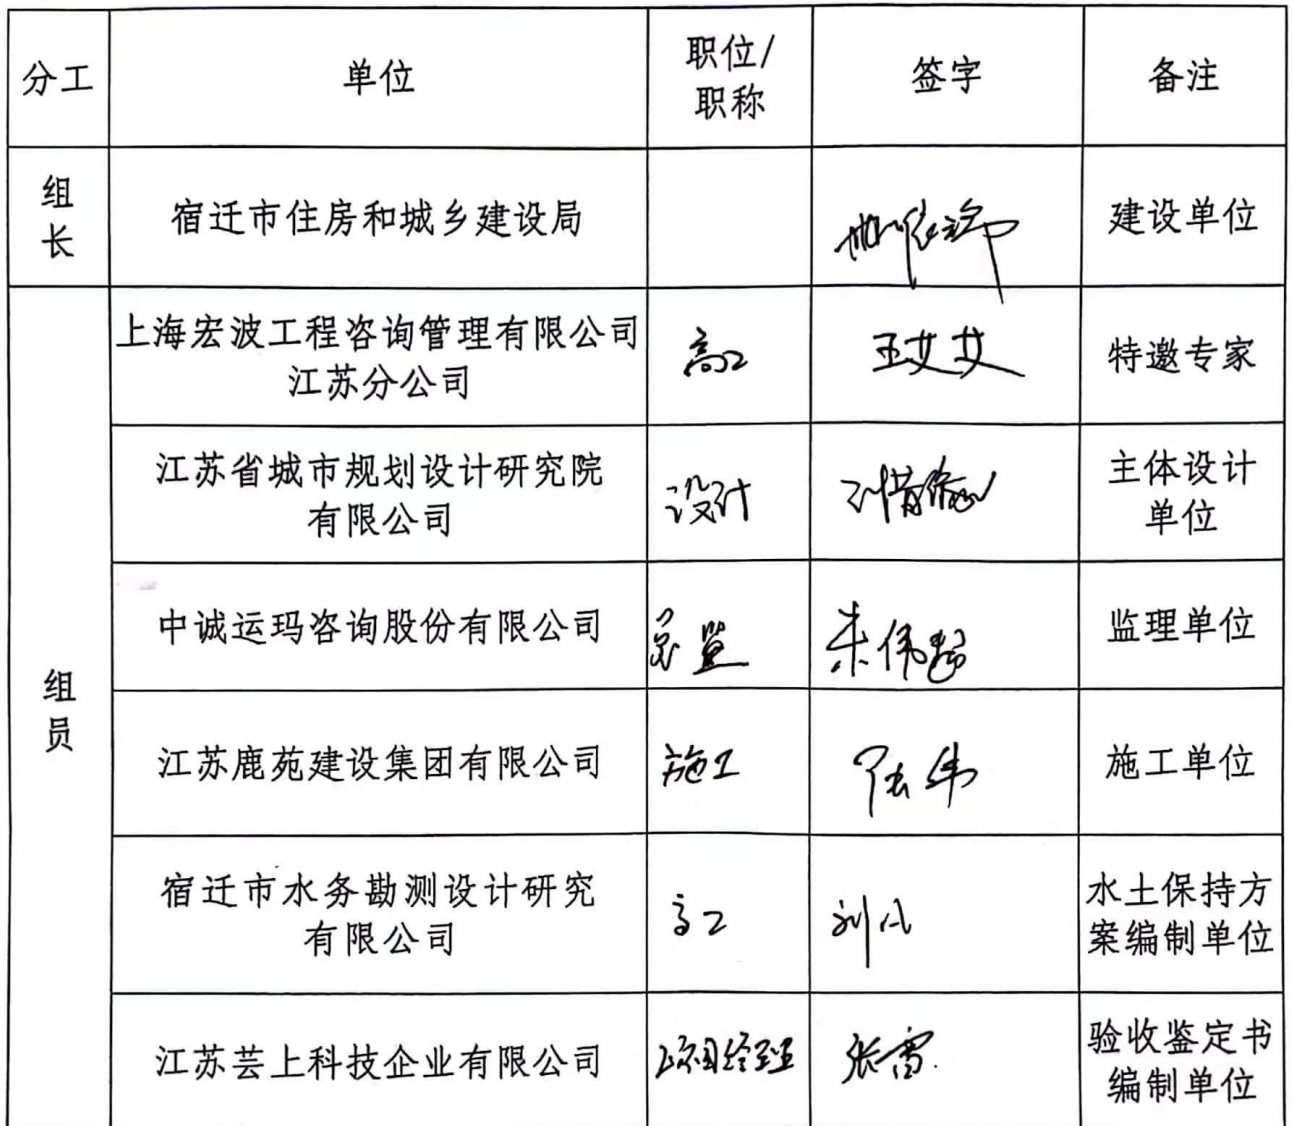 分工
单位
职位/
职称
签字
备注
组
长
宿迁市住房和城乡建设局
建设单位
组
员
上海宏波工程咨询管理有限公司
江苏分公司
高工
王艾艾
特邀专家
江苏省城市规划设计研究院
有限公司
设计
主体设计
单位
中诚运玛咨询股份有限公司
总监
朱伟
监理单位
江苏鹿苑建设集团有限公司
施工
陆伟
施工单位
宿迁市水务勘测设计研究
有限公司
高工
刘凡
水土保持方
案编制单位
江苏芸上科技企业有限公司
项目经理
张雷
验收鉴定书
编制单位